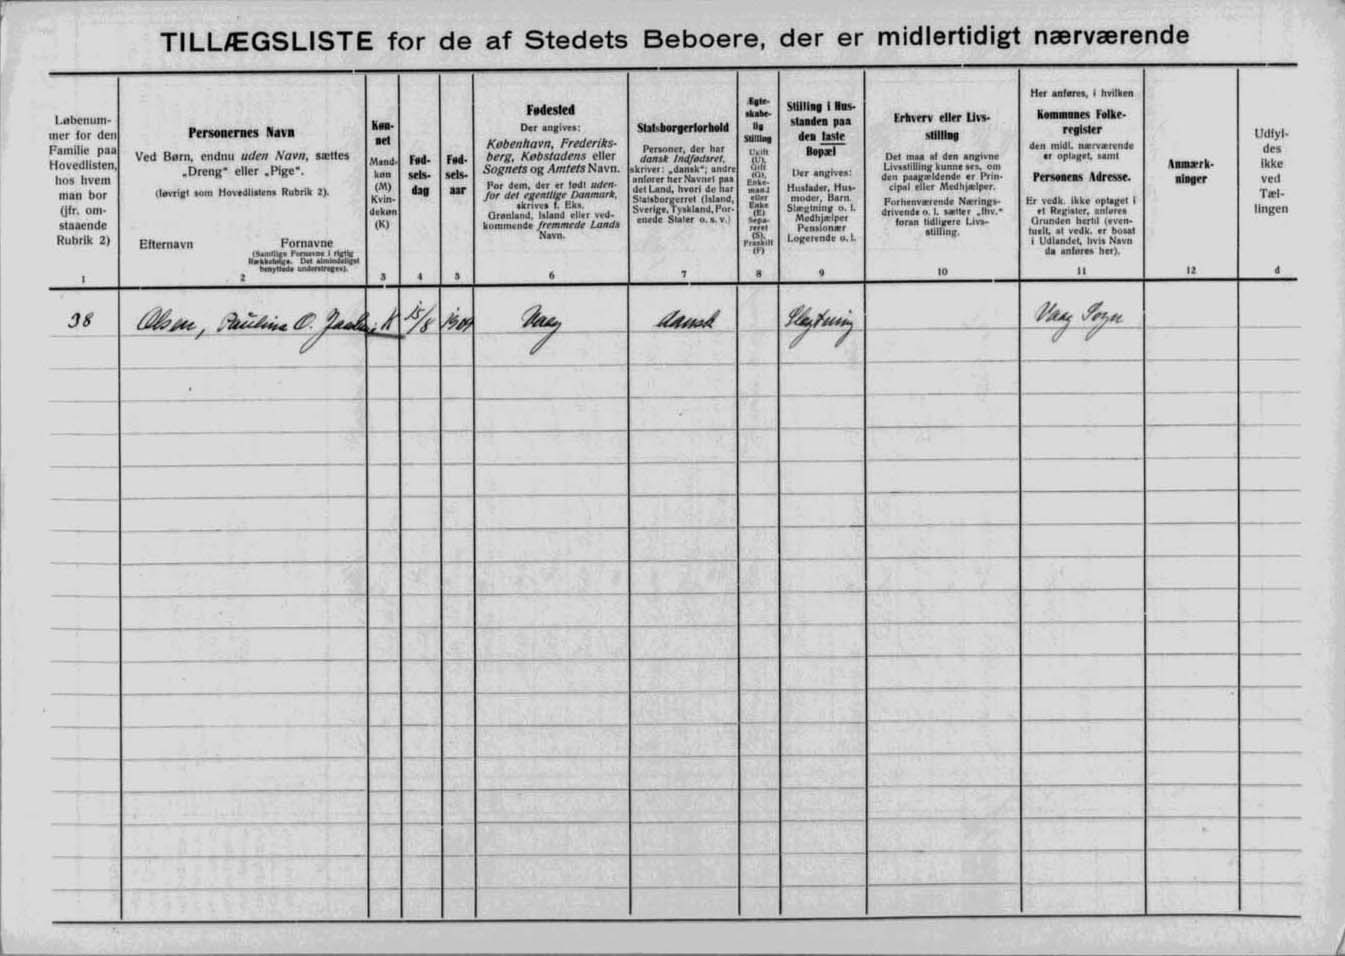 TILLÆGSLISTE for de af Stedets Beboere, der er midlertidigt nærværende
Løbenum-
mer for den
Familie paa
Hovedlisten,
hos hvem
man bor
(jfr. om-
staaende
Rubrik 2)
1
Personernes Navn
Ved Børn, endnu uden Navn, sættes
„Dreng“ eller „Pige“.
(Iøvrigt som Hovedlistens Rubrik 2).
Efternavn Fornavne
(Samtlige Fornavne i rigtig
Rækkefølge. Det almindeligst
benyttede understreges).
2
Køn-
net
Mand-
køn
(M)
Kvin-
dekøn
(K)
3
Fød-
sels-
dag
4
Fød-
sels-
aar
5
Fødested
Der angives:
København, Frederiks-
berg, Købstadens eller
Sognets og Amtets Navn.
For dem, der er født uden-
for det egentlige Danmark,
skrives f. Eks.
Grønland, Island eller ved-
kommende fremmede Lands
Navn.
6
Statsborgerforhold
Personer, der har
dansk Indfødsret,
skriver: „dansk“; andre
anfører her Navnet paa
det Land, hvori de har
Statsborgerret (Island,
Sverige, Tyskland, For-
enede Stater o. s. v.)
7
Ægte-
skabe-
lig
Stilling
Ugift
(U),
Gift
(G),
Enke-
mand
eller
Enke
(E)
Sepa-
reret
(S),
Fraskilt
(F)
8
Stilling i Hus-
standen paa
den faste
Bopæl
Der angives:
Husfader, Hus-
moder, Barn,
Slægtning o. l.
Medhjælper
Pensionær
Logerende o. l.
9
Erhverv eller Livs-
stilling
Det maa af den angivne
Livsstilling kunne ses, om
den paagældende er Prin-
cipal eller Medhjælper.
Forhenværende Nærings-
drivende o. l. sætter „fhv.“
foran tidligere Livs-
stilling.
10
Her anføres, i hvilken
Kommunes Folke-
register
den midl. nærværende
er optaget, samt
Personens Adresse.
Er vedk. ikke optaget i
et Register, anføres
Grunden hertil (even-
tuelt, at vedk. er bosat
i Udlandet, hvis Navn
da anføres her).
11
Anmærk-
ninger
12
Udfyl-
des
ikke
ved
Tæl-
lingen
d
38 Olsen, Paulina O. K 15/8 Vaag dansk Slægtning Vaag Sogn